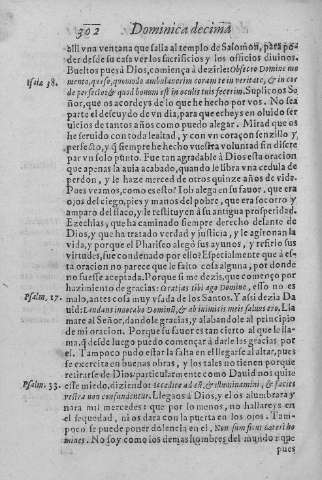 302 Dominica decima
alli vna ventana que salia al templo de Salomon, para po-
der desde su casa ver los sacrificios y los officios diuinos.
Bueltos pues à Dios, comiença à dezirle: Obsecro Domine me
Isaiæ 38. mento, quæso, quomodo ambulauerim coram te in veritate, & in cor
de perfecto: & quod bonum est in oculis tuis fecerim. Suplicoos Se
ñor, que os acordeys de lo que he hecho por vos. No sea
parte el descuydo de vn dia, para que echeys en oluido ser
uicios de tantos años como puedo alegar. Mirad que os
he seruido con toda lealtad, y con vn coraçon senzillo y
perfecto, y q̃ siempre he hecho vuestra voluntad sin discre
par vn solo punto. Fue tan agradable à Dios esta oracion
que apenas la auia acabado, quando le libra vna cedula de
perdon, y le haze merced de otros quinze años de vida.
Pues veamos, como es esto? Iob alegò en su fauor, que era
ojos del ciego, pies y manos del pobre, que era socorro y
amparo del flaco, y le restituyen à su antigua prosperidad.
Ezechias, que ha caminado siempre derecho delante de
Dios, y que ha tratado verdad y justicia, y le agironan la
vida, y porque el Phariseo alegò sus ayunos, y refirio sus
virtudes, fue condenado por ello? Especialmente que à es-
ta oracion no parece que le faito cosa alguna, por donde
no fuesse aceptada. Porque si me dezis, que començo por
hazimiento de gracias: Gratias tibi ago Domine, esso no es
Psalm. 17. malo, antes cosa muy vsada de los Santos. Y assi dezia Da
uid: Laudans inuocabo Dominũ, & ab inimicis meis saluus ero. Lla
mare al Señor, dandole gracias, y alabandole al principio
de mi oracion. Porque su fauor es tan cierto al que le lla-
ma, q̃ desde luego puedo començar à darle gracias por
el. Tampoco pudo estar la falta en el llegarse al altar, pues
se exercita en buenas obras, y los tales no tienen porque
retirarse de Dios: particularmente como Dauid nos quite
Psalm. 33. esse miedo, diziendo: accedite ad eũ, & illuminamini, & facies
vestræ non confundentur. Llegaos à Dios, y el os alumbrara y
hara mil mercedes: que por lo menos, no hallareys en
el sequedad, ni os dara con la puerta en los ojos. Tam-
poco se puede poner dolencia en el, Non sum sicut cæteri ho
mines. No soy como los demas hombres del mundo: que
pues